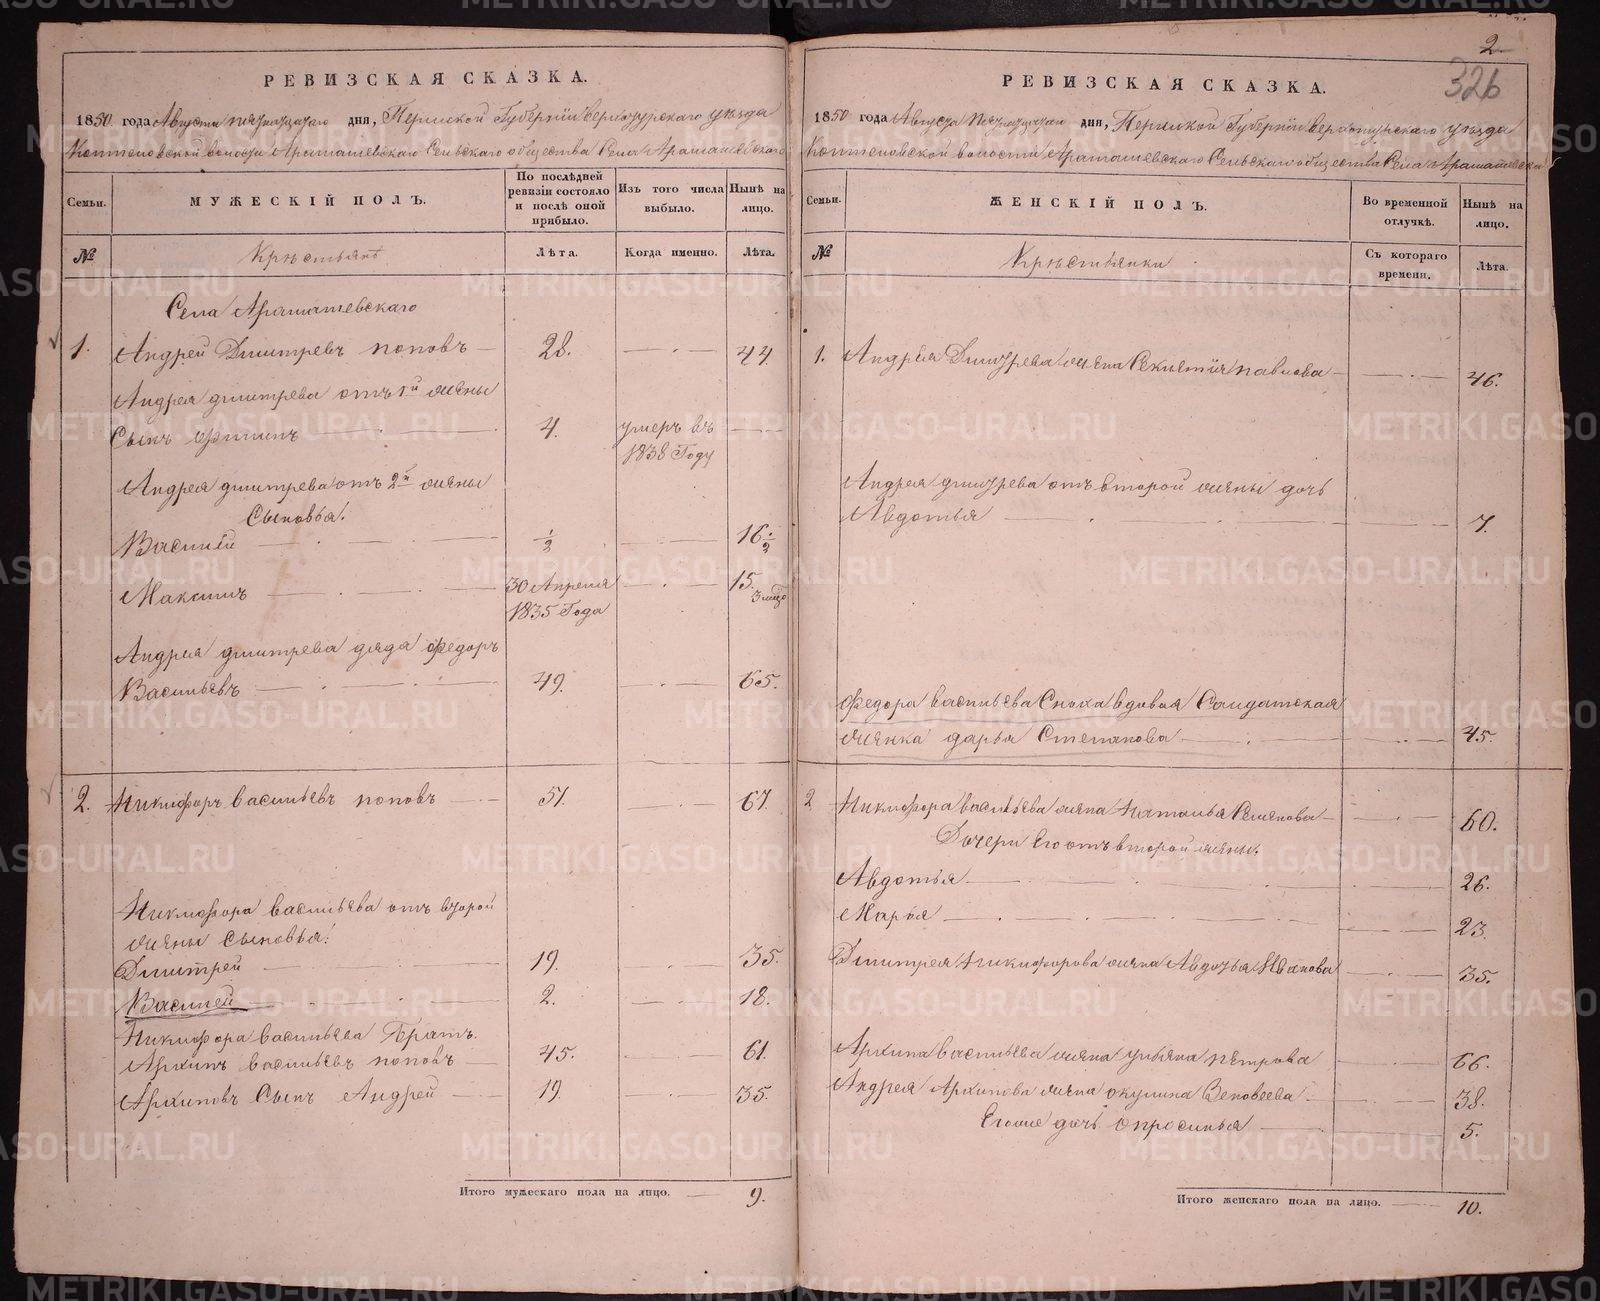 РЕВИЗСКАЯ СКАЗКА.
1850 года Августа пятнадцатаго дня, Пермской Губернiи Верхотурскаго уѣзда
Коптеловской волости Арамашевскаго Сельскаго общества Села Арамашевскаго
Семьи.
МУЖЕСКІЙ ПОЛЪ.
По послѣдней ревизіи состояло и послѣ оной прибыло.
Изъ того числа выбыло.
Нынѣ на лицо.
№
Крѣстьянѣ
Лѣта.
Когда именно.
Лѣта.
Села Арамашевскаго
1. Андрей Дмитревъ поповъ — 28. — 44.
Андрея дмитрева отъ 1й жены
Сынъ Филипъ — 4. умеръ въ 1838 Году —
Андрея дмитрева отъ 2й жены
Сыновья:
Василiй — 1/2 — 16 1/2
Максимъ — 30 Апреля 1835 Года — 15. 3 мцо
Андрея дмитрева дядя Федоръ
Васильевъ — 49. — 65.
2. Никифоръ васильевъ поповъ — 51. — 67.
Никифора васильева отъ второй
жены Сыновья:
Дмитрей — 19. — 35.
Василей — 2. — 18.
Никифора васильева Братъ
Архипъ васильевъ поповъ — 45. — 61.
Архиповъ Сынъ Андрей — 19. — 35.
Итого мужескаго пола на лицо. — 9.
2
326
РЕВИЗСКАЯ СКАЗКА.
1850 года Августа Пятнадцатаго дня, Пермской Губернiи Верхотурскаго уѣзда
Коптеловской волости Арамашевскаго Сельскаго общества Села Арамашевска
Семьи.
ЖЕНСКІЙ ПОЛЪ.
Во временной отлучкѣ.
Нынѣ на лицо.
№
Крѣстьянки
Съ котораго времени.
Лѣта.
1. Андрея Дмитрева жена павлова — 46.
Андрея дмитрева отъ второй жены дочь
Авдотья — 7.
Федора васильева Сноха вдовая Салдатская
жѣнка дарья Степанова — 45.
2 Никифора васильева жена Наталья Семенова — 60.
Дочери Его отъ второй жены.
Авдотья — 26.
Марья — 23.
Дмитрея Никифорова жена Авдотья Иванова — 35.
Архипа васильева жена ульяна пѣтрова — 66.
Андрея Архипова жена окулина — 38.
Егоже дочь опросинья — 5.
Итого женскаго пола на лицо. — 10.
METRIKI.GASO-URAL.RU